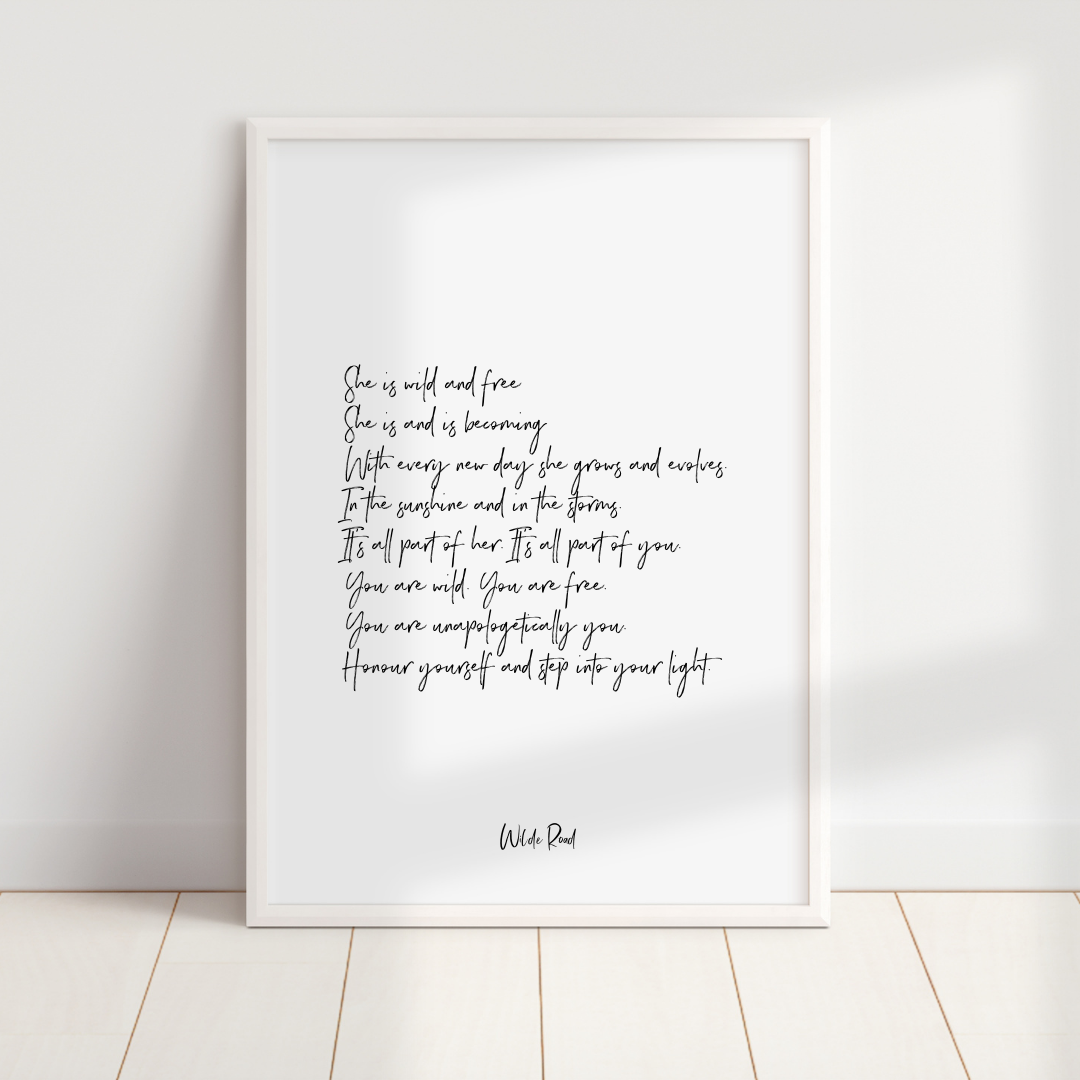 She is wild and free
She is and is becoming
With every new day she grows and evolves.
In the sunshine and in the storms.
It's all part of her. It's all part of you.
You are wild. You are free.
You are unapologetically you.
Honour yourself and step into your light.
Wilde Road